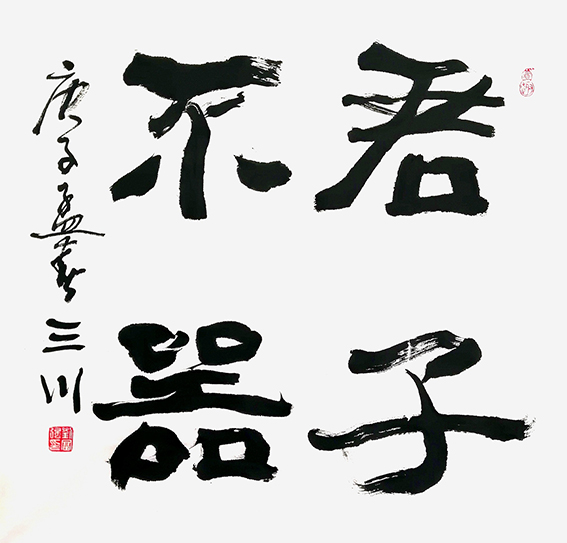 君子
不器
庚子孟春三川